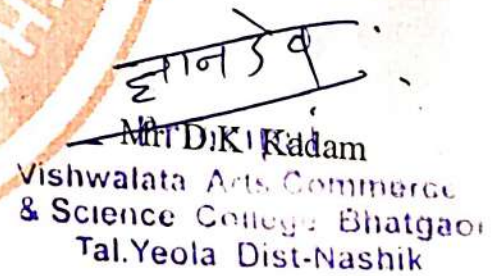 ज्ञानदेव
D.K. Kadam
Vishwalata Arts Commerce
& Science College Bhatgaon
Tal.Yeola Dist-Nashik